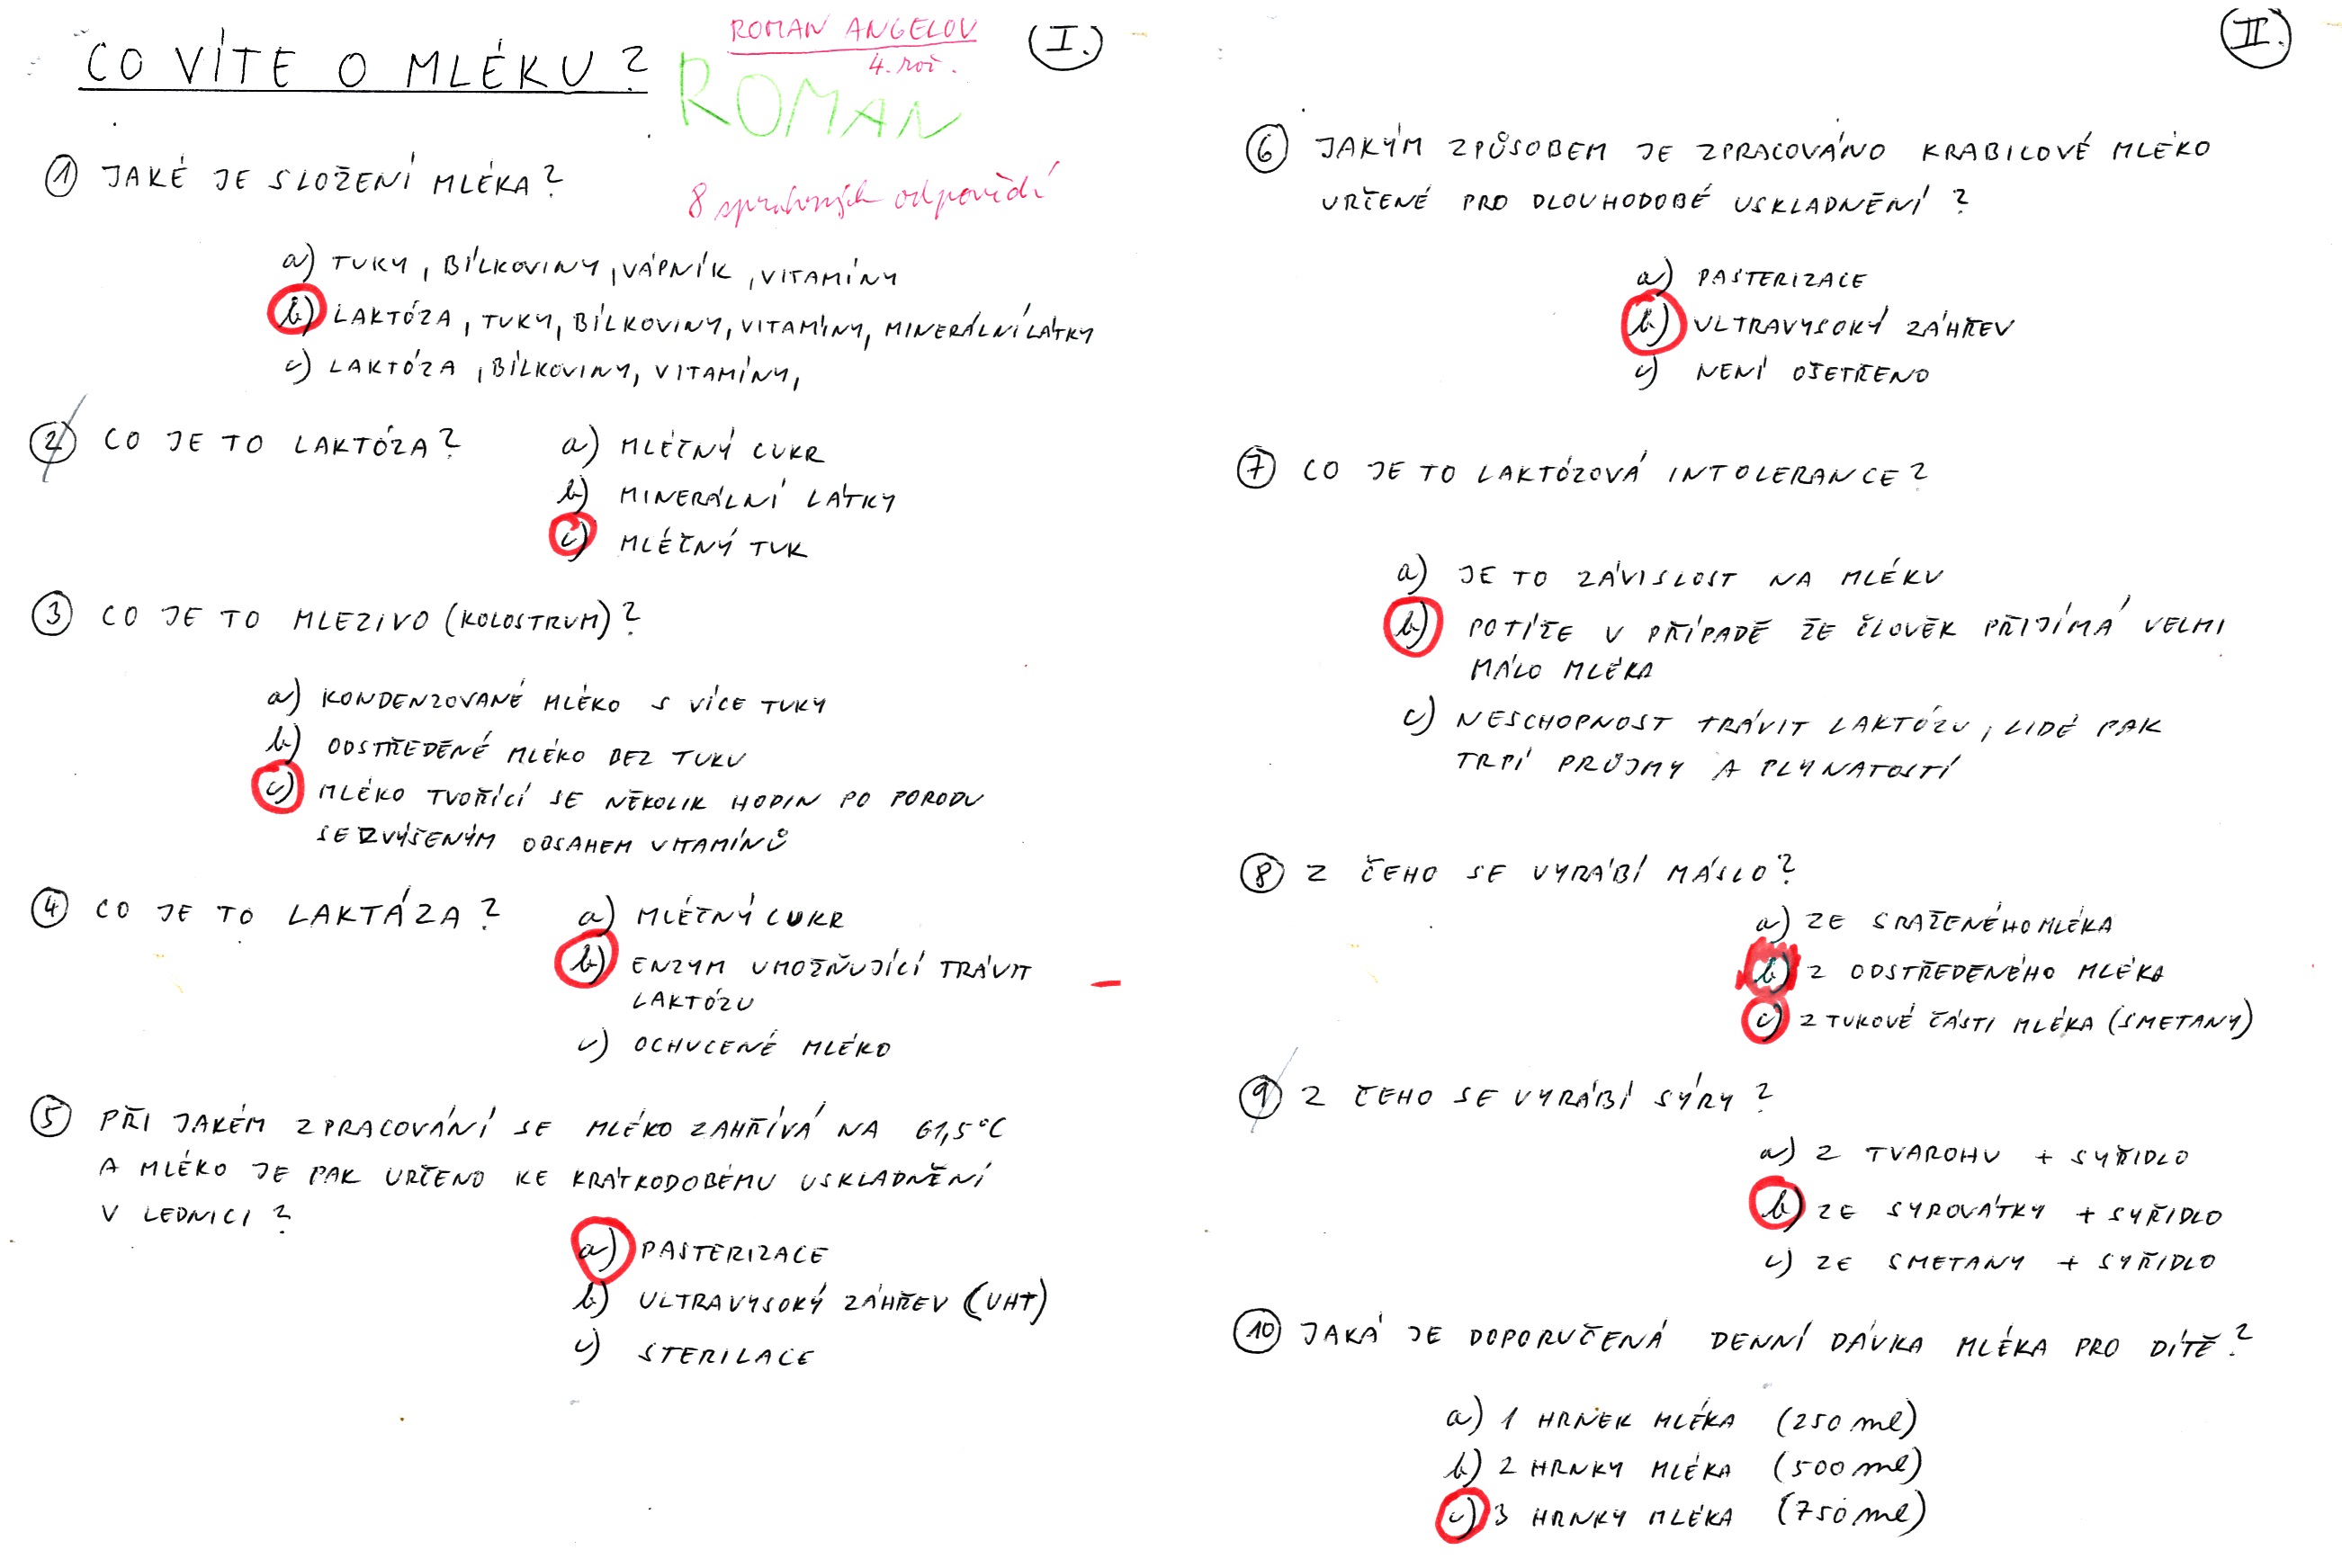 CO VÍTE O MLÉKU?
ROMAN ANGELOV
4. roč.
I.
ROMAN
8 správných odpovědí
1 JAKÉ JE SLOŽENÍ MLÉKA?
a) TUKY, BÍLKOVINY, VÁPNÍK, VITAMÍNY
b) LAKTÓZA, TUKY, BÍLKOVINY, VITAMÍNY, MINERÁLNÍ LÁTKY
c) LAKTÓZA, BÍLKOVINY, VITAMÍNY,
2 CO JE TO LAKTÓZA?
a) MLÉČNÝ CUKR
b) MINERÁLNÍ LÁTKY
c) MLÉČNÝ TUK
3 CO JE TO MLEZIVO (KOLOSTRUM)?
a) KONDENZOVANÉ MLÉKO S VÍCE TUKY
b) ODSTŘEDĚNÉ MLÉKO BEZ TUKU
c) MLÉKO TVOŘÍCÍ SE NĚKOLIK HODIN PO PORODU
SE ZVÝŠENÝM OBSAHEM VITAMÍNŮ
4 CO JE TO LAKTÁZA?
a) MLÉČNÝ CUKR
b) ENZYM UMOŽŇUJÍCÍ TRÁVIT
LAKTÓZU
c) OCHUCENÉ MLÉKO
5 PŘI JAKÉM ZPRACOVÁNÍ SE MLÉKO ZAHŘÍVÁ NA 61,5°C
A MLÉKO JE PAK URČENO KE KRÁTKODOBÉMU USKLADNĚNÍ
V LEDNICI?
a) PASTERIZACE
b) ULTRAVYSOKÝ ZÁHŘEV (UHT)
c) STERILACE
II.
6 JAKÝM ZPŮSOBEM JE ZPRACOVÁNO KRABICOVÉ MLÉKO
URČENÉ PRO DLOUHODOBÉ USKLADNĚNÍ?
a) PASTERIZACE
b) ULTRAVYSOKÝ ZÁHŘEV
c) NENÍ OŠETŘENO
7 CO JE TO LAKTÓZOVÁ INTOLERANCE?
a) JE TO ZÁVISLOST NA MLÉKU
b) POTÍŽE V PŘÍPADĚ ŽE ČLOVĚK PŘIJÍMÁ VELMI
MÁLO MLÉKA
c) NESCHOPNOST TRÁVIT LAKTÓZU, LIDÉ PAK
TRPÍ PRŮJMY A PLYNATOSTÍ
8 Z ČEHO SE VYRÁBÍ MÁSLO?
a) ZE SRAŽENÉHO MLÉKA
b) Z ODSTŘEDENÉHO MLÉKA
c) Z TUKOVÉ ČÁSTI MLÉKA (SMETANY)
9 Z ČEHO SE VYRÁBÍ SÝRY?
a) Z TVAROHU + SYŘIDLO
b) ZE SYROVÁTKY + SYŘIDLO
c) ZE SMETANY + SYŘIDLO
10 JAKÁ JE DOPORUČENÁ DENNÍ DÁVKA MLÉKA PRO DÍTĚ?
a) 1 HRNEK MLÉKA (250 ml)
b) 2 HRNKY MLÉKA (500 ml)
c) 3 HRNKY MLÉKA (750 ml)